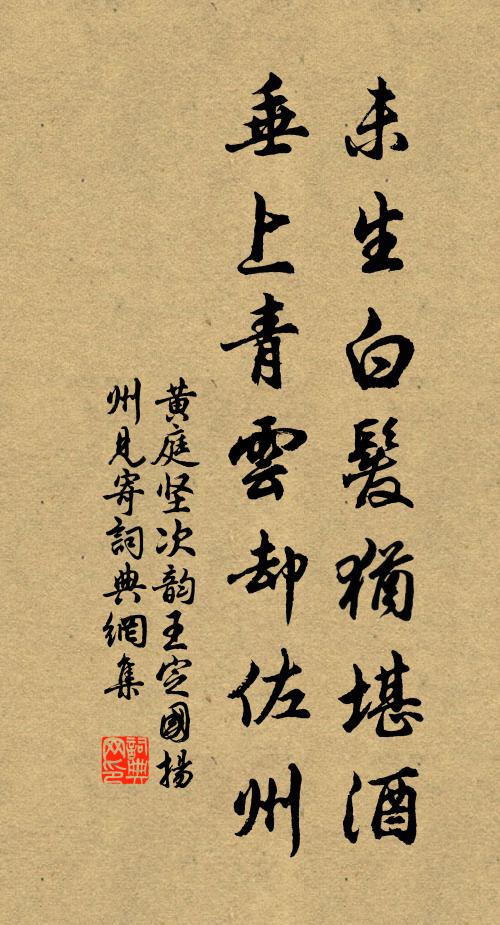 未生白髮猶堪酒
垂上青雲却佐州
黄庭坚次韵王定國揚
州見寄詞典網集
詞典
网印